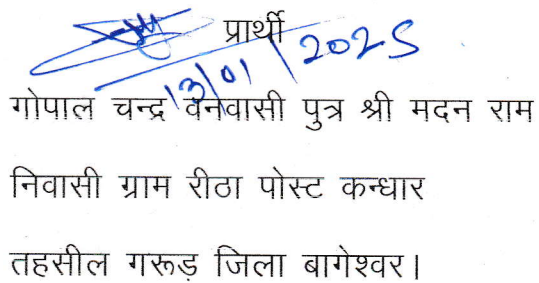 प्रार्थी
13/01/2025
गोपाल चन्द्र वनवासी पुत्र श्री मदन राम
निवासी ग्राम रीठा पोस्ट कन्धार
तहसील गरूड़ जिला बागेश्वर।